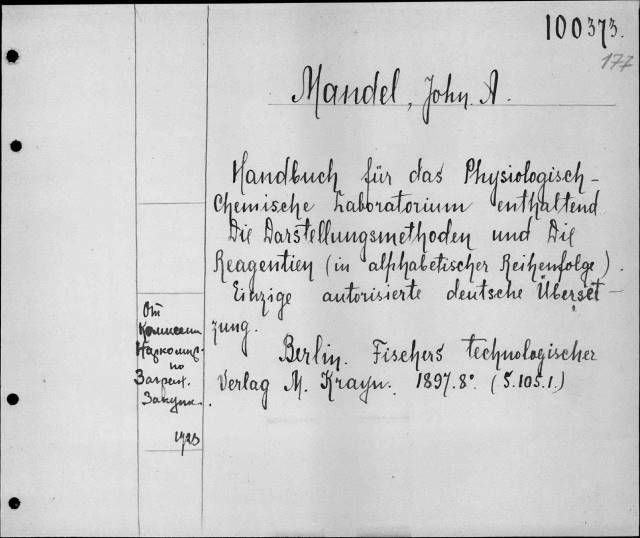 100373.
177
Mandel, John. A.
Handbuch für das Physiologisch-
Chemische Laboratorium enthaltend
Die Darstellungsmethoden und Die
Reagentien (in alphabetischer Reihenfolge).
Einzige autorisierte deutsche Überset-
zung.
Berlin. Fischers technologischer
Verlag M. Krayn. 1897. 8°. (S. 105. 1.)
От
Комиссии
по
Загрон.
Закупк.
1923